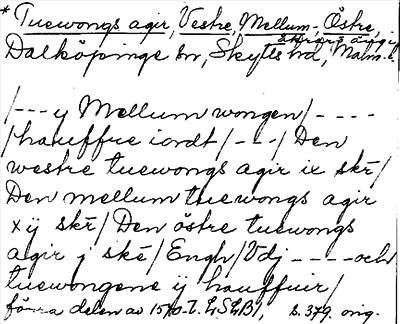 * Tuewongs agir, Vestre, Mellum-, Östre,
Dalköpinge sn, Skytts hd, Malm. l.
/---y Mellum wongen/----
/hauffue iordt/---/Den
westre tuewongs agir ix skr̄/
Den mellum tuewongs agir
xij skr̄/Den östre tuewongs
agir j skē/Engh/Vdj ----och
tuewongene ij hauffuir/
förra delen av 1570-t. LSLB1, s. 379. orig.